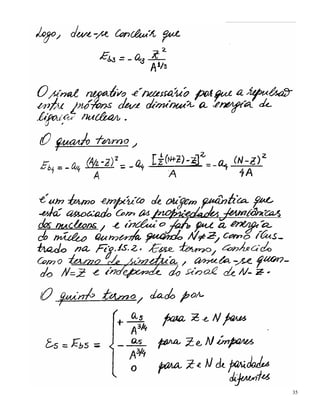 Logo, deve-se concluir que
E_b3 = - a_3 Z^2 / A^1/3
O sinal negativo é necessário porque a repulsão
entre prótons deve diminuir a energia de
ligação nuclear.
O quarto termo,
E_b4 = - a_4 (A/2 - Z)^2 / A = - a_4 [1/2 (N+Z) - Z]^2 / A = - a_4 (N-Z)^2 / 4A
é um termo empírico de origem quântica que
está associado com as propriedades fermiônicas
dos nucleons, e inclui o fato que a energia
do núcleo aumenta quando N≠Z, como ilus-
trado na Fig. 15.2. Esse termo, conhecido
como termo de simetria, anula-se quan-
do N=Z e independe do sinal de N-Z.
O quinto termo, dado por
+ a_5 / A^3/4 para Z e N pares
E_5 = E_b5 = { - a_5 / A^3/4 para Z e N ímpares
0 para Z e N de paridades
diferentes
35